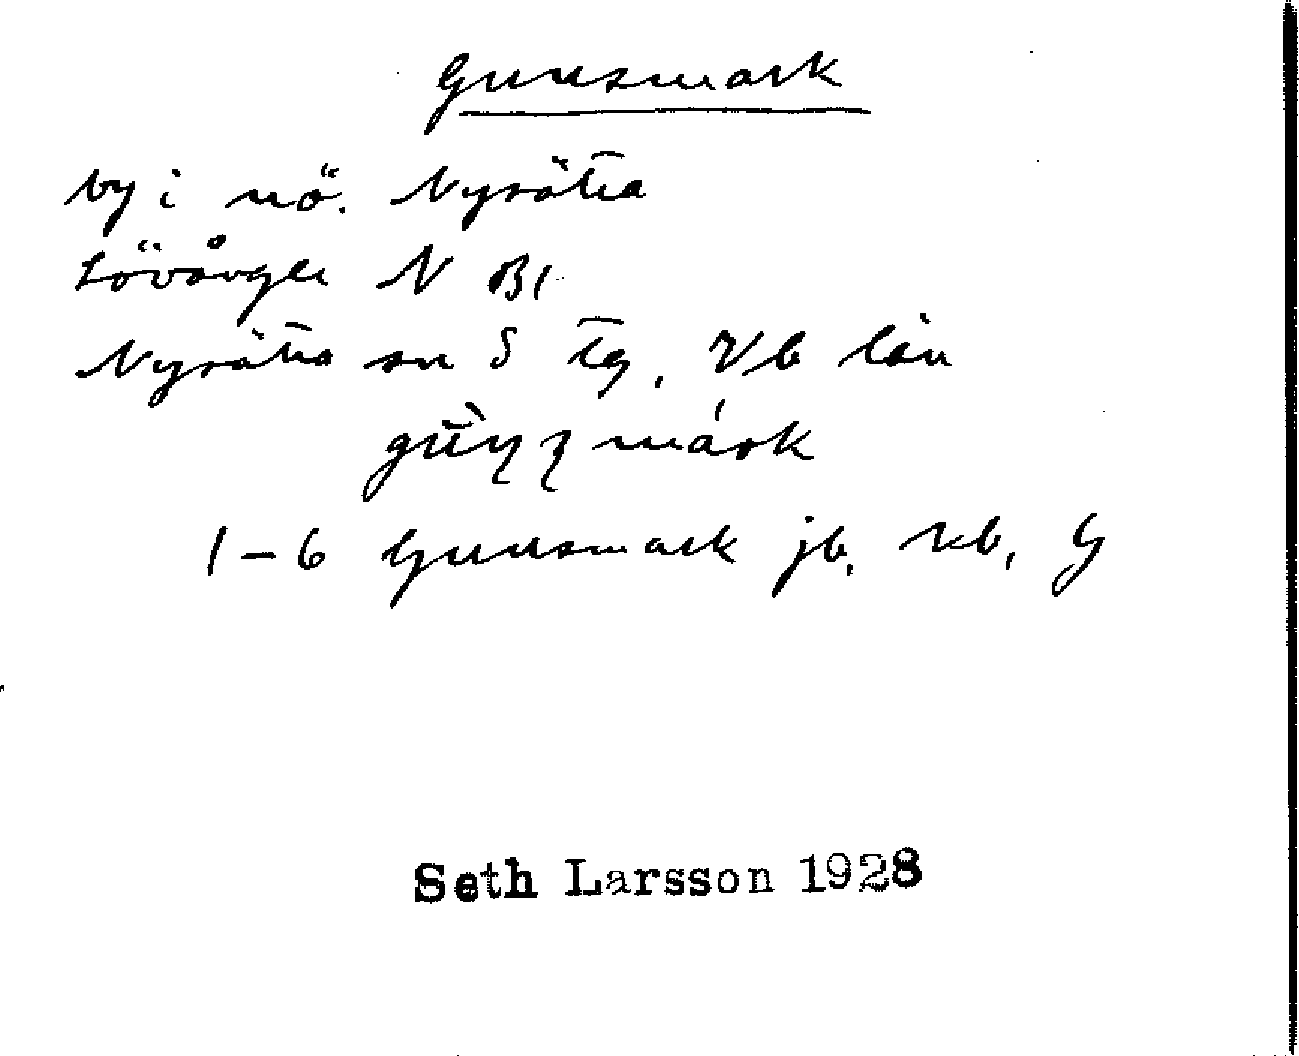 Gunsmark
by i nö. Nysätra
Lövånger N Bl
Nysätra sn S tg, Vb län
1-6 Gunsmark jb, kb, G
Seth Larsson 1928